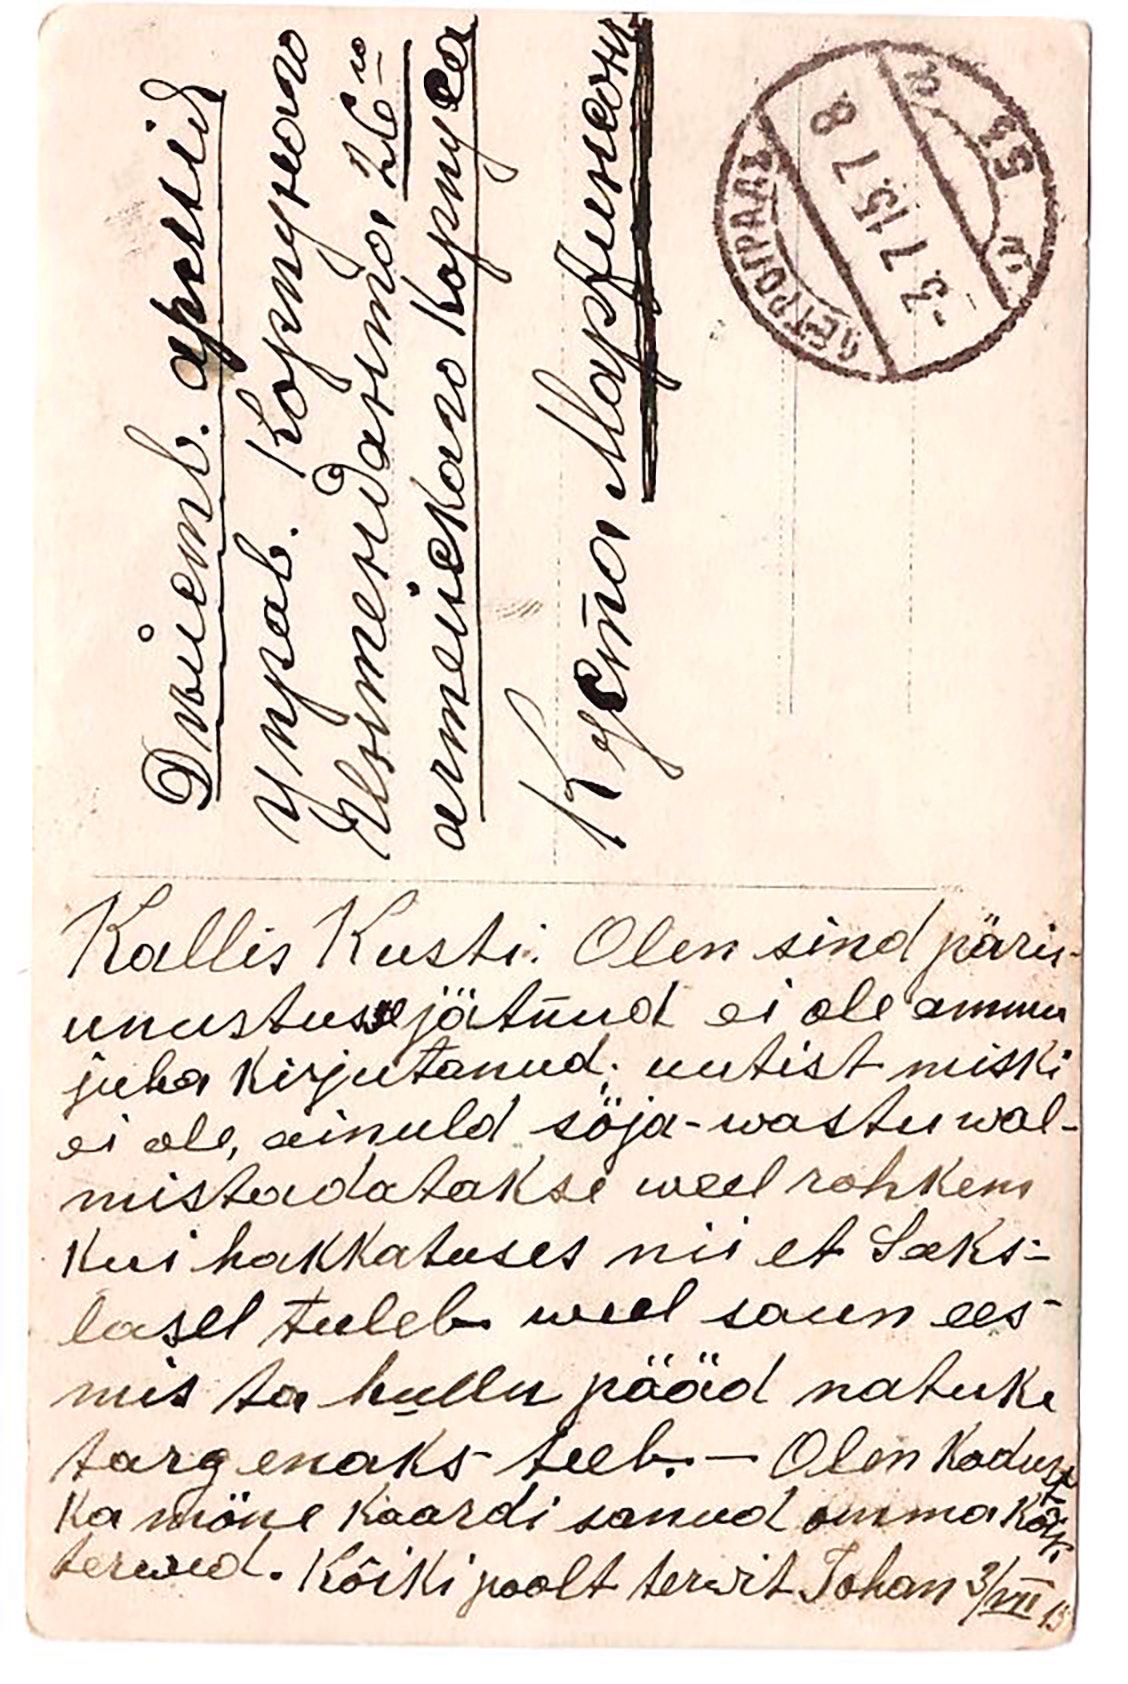 Дѣйств. армія
управ. Корпуснаго
Интенданта 26го
армейскаго корпуса
Кусто Марфинсону
ПЕТРОГРАДЪ
-3.7.15.7 8
Kallis Kusti. Olen sind päris-
unustusse jätnud ei ole ammu
juba kirjutanud, uutist miski
ei ole, ainuld sõja-wastu wal-
mistadatakse weel rohkem
kui hakkatuses nii et Saks-
lasel tuleb weel saun ees-
mis ta hullu pääd natuke
targenaks teeb. — Olen kodust
ka mõne kaardi sanud omma kõik
terwed. Kõiki poolt terwit Johan 3/VII 15